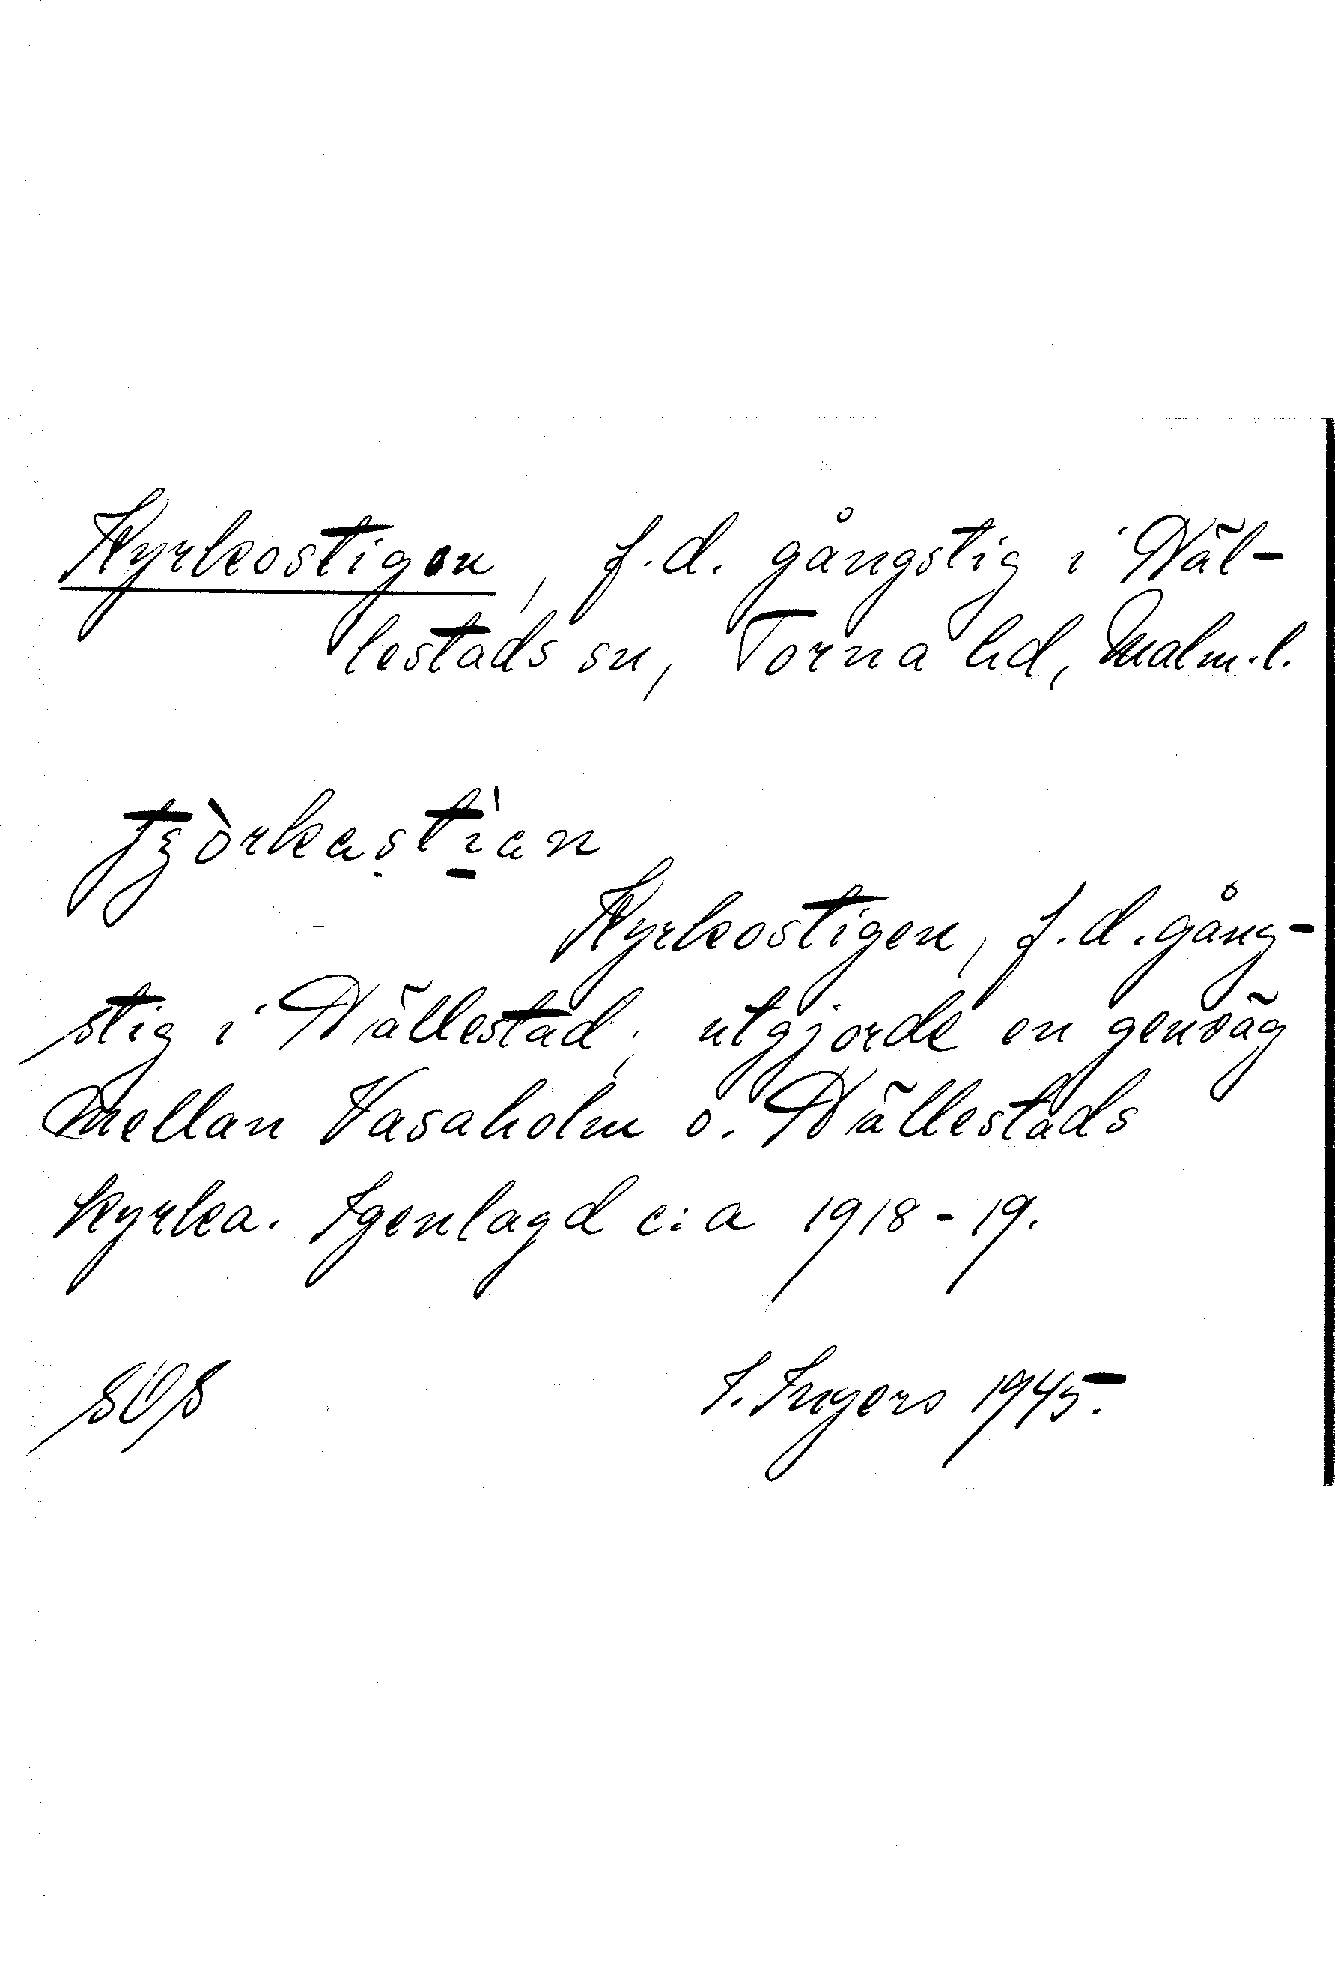 Kyrkostigen, f.d. gångstig i Häl-
lestads sn, Torna hd, Malm.l.
tʒòrkastìan
Kyrkostigen, f.d. gång-
stig i Hällestad; utgjorde en genväg
mellan Vasaholm o. Hällestads
kyrka. Igenlagd c:a 1918-19.
SOS I. Ingers 1945.